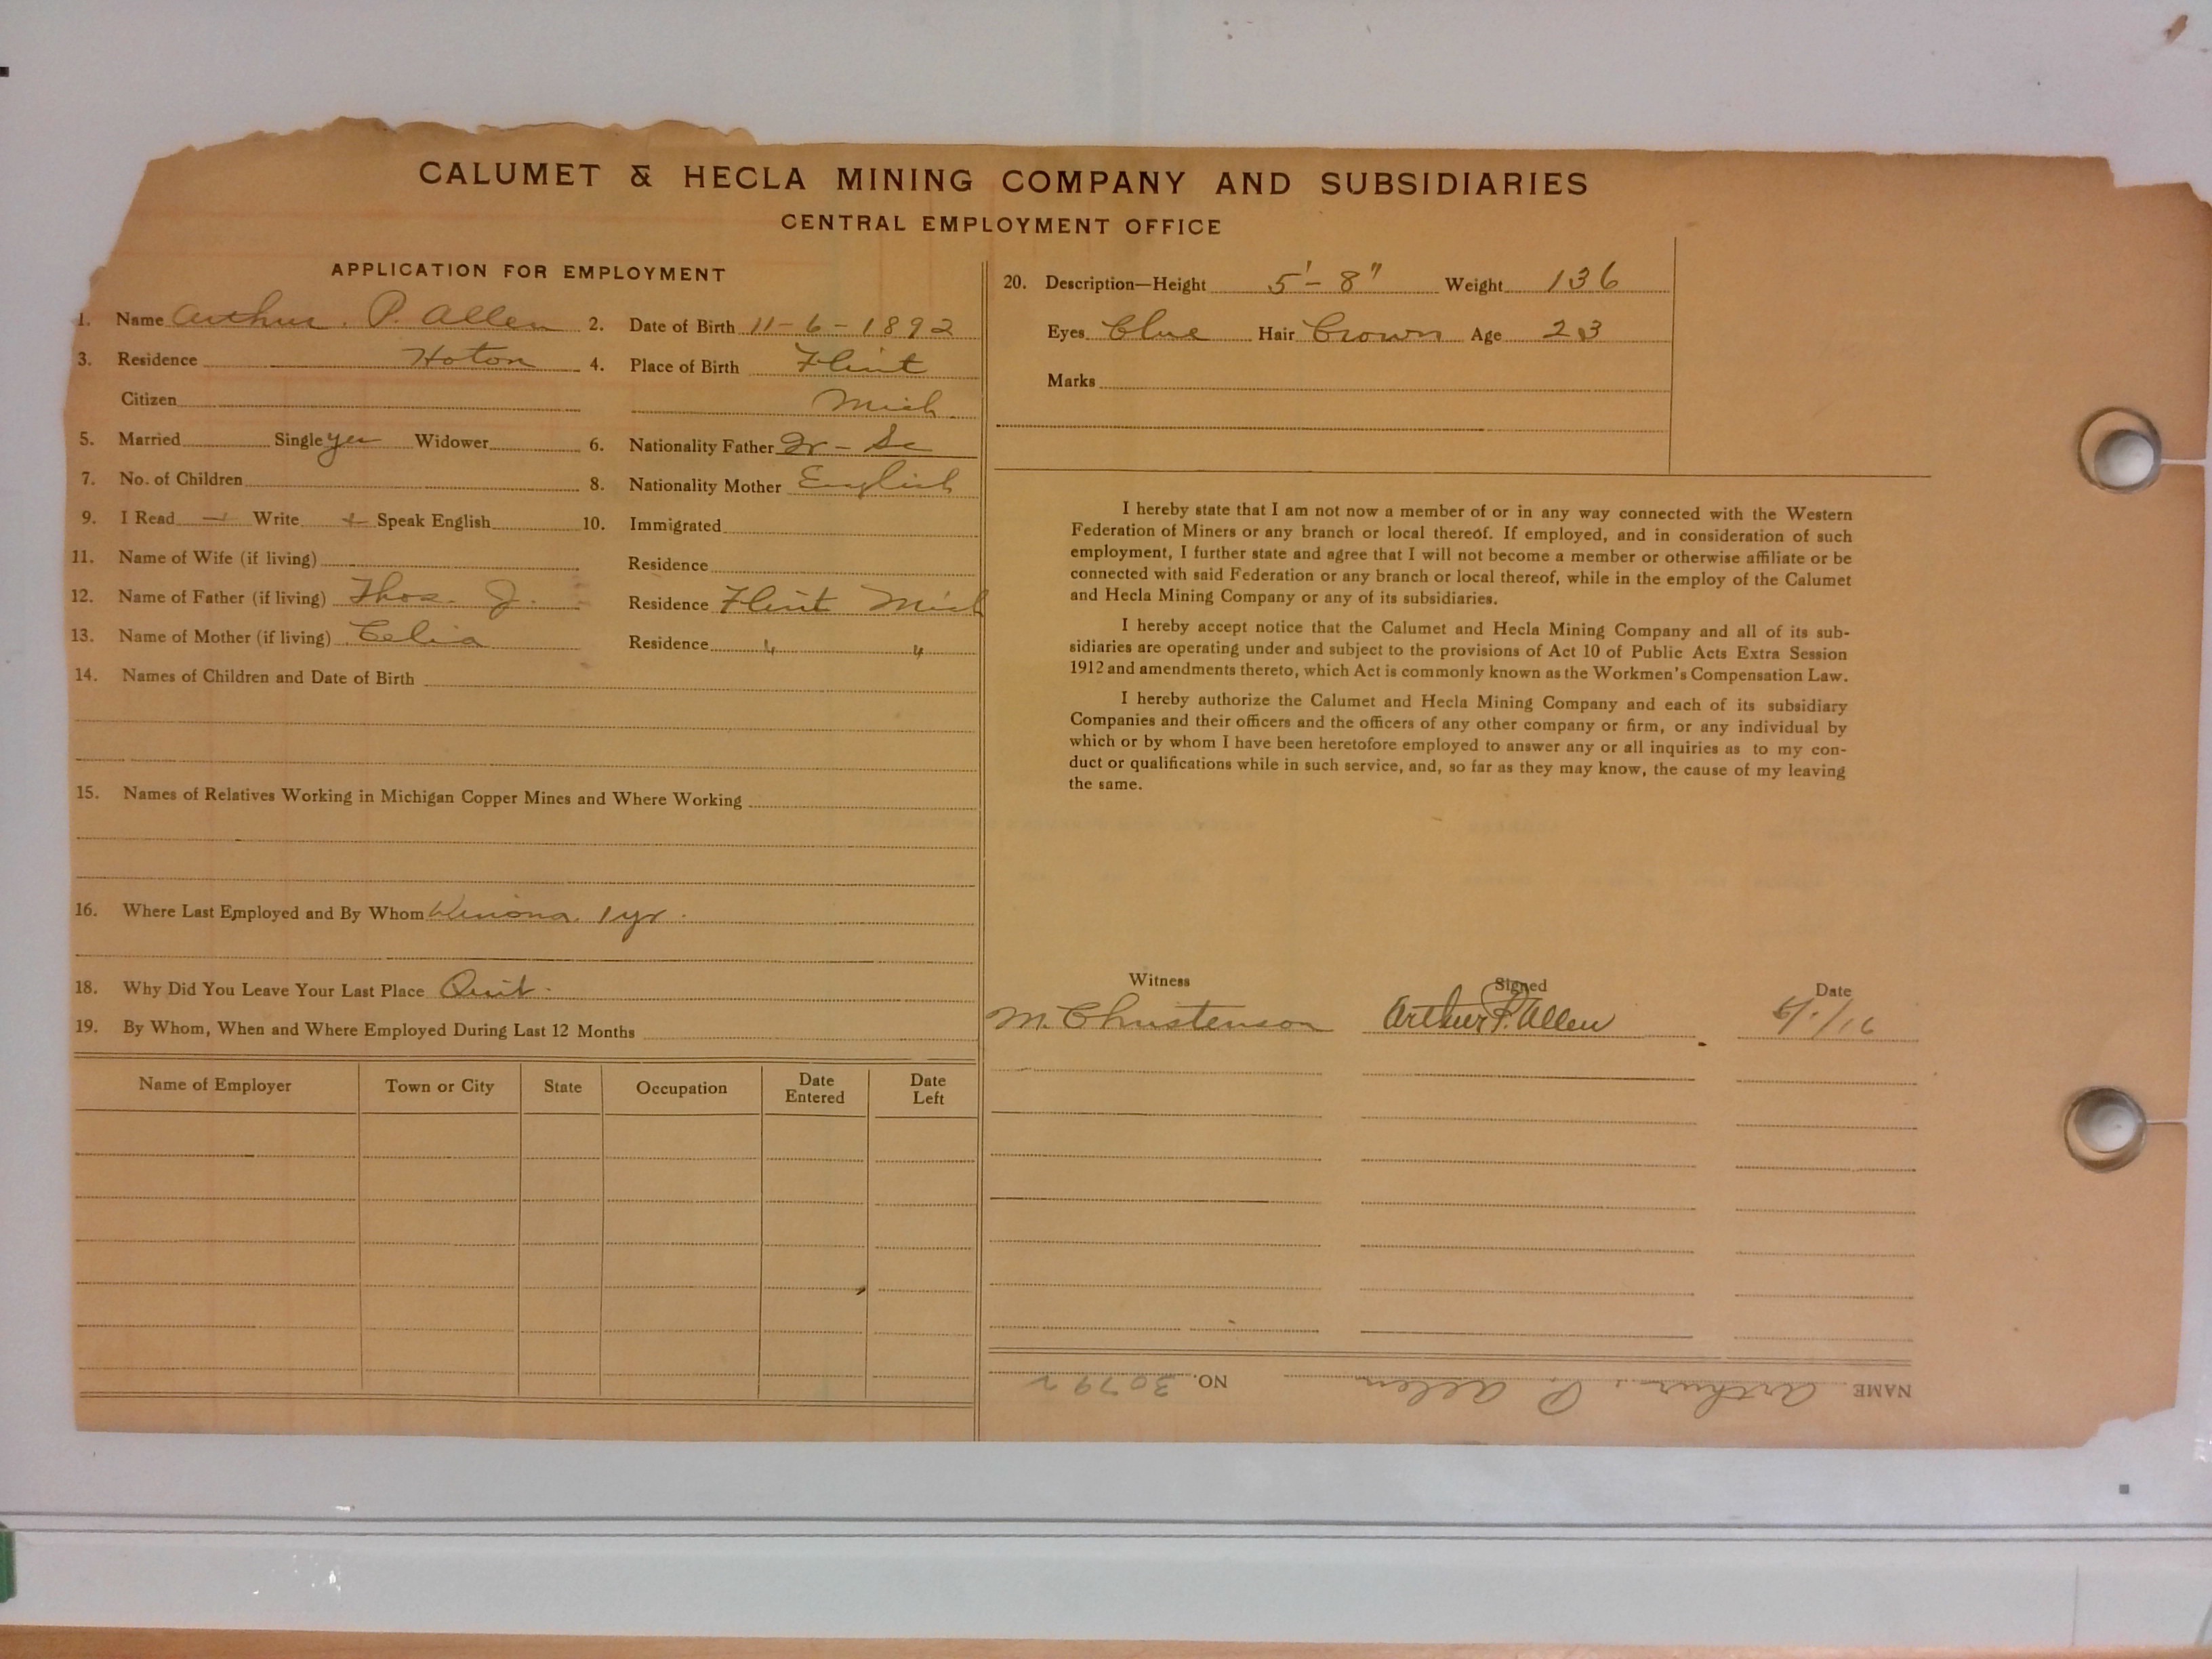 CALUMET & HECLA MINING COMPANY AND SUBSIDIARIES
CENTRAL EMPLOYMENT OFFICE
APPLICATION FOR EMPLOYMENT
1. Name Arthur. P. Allen 2. Date of Birth 11-6-1892
3. Residence Hoton 4. Place of Birth Flint
Citizen Mich
5. Married Single yes Widower 6. Nationality Father Ir - Sc
7. No. of Children 8. Nationality Mother English
9. I Read Write Speak English 10. Immigrated
11. Name of Wife (if living) Residence
12. Name of Father (if living) Thos. J. Residence Flint Mich
13. Name of Mother (if living) Celia Residence " "
14. Names of Children and Date of Birth
15. Names of Relatives Working in Michigan Copper Mines and Where Working
16. Where Last Employed and By Whom Winona. 1 yr.
18. Why Did You Leave Your Last Place Quit.
19. By Whom, When and Where Employed During Last 12 Months
Name of Employer Town or City State Occupation Date Entered Date Left
20. Description—Height 5'-8" Weight 136
Eyes Blue Hair Brown Age 23
Marks
I hereby state that I am not now a member of or in any way connected with the Western
Federation of Miners or any branch or local thereof. If employed, and in consideration of such
employment, I further state and agree that I will not become a member or otherwise affiliate or be
connected with said Federation or any branch or local thereof, while in the employ of the Calumet
and Hecla Mining Company or any of its subsidiaries.
I hereby accept notice that the Calumet and Hecla Mining Company and all of its sub-
sidiaries are operating under and subject to the provisions of Act 10 of Public Acts Extra Session
1912 and amendments thereto, which Act is commonly known as the Workmen's Compensation Law.
I hereby authorize the Calumet and Hecla Mining Company and each of its subsidiary
Companies and their officers and the officers of any other company or firm, or any individual by
which or by whom I have been heretofore employed to answer any or all inquiries as to my con-
duct or qualifications while in such service, and, so far as they may know, the cause of my leaving
the same.
Witness Signed Date
M. Christenson Arthur P. Allen
NAME Arthur. P. Allen NO. 30792